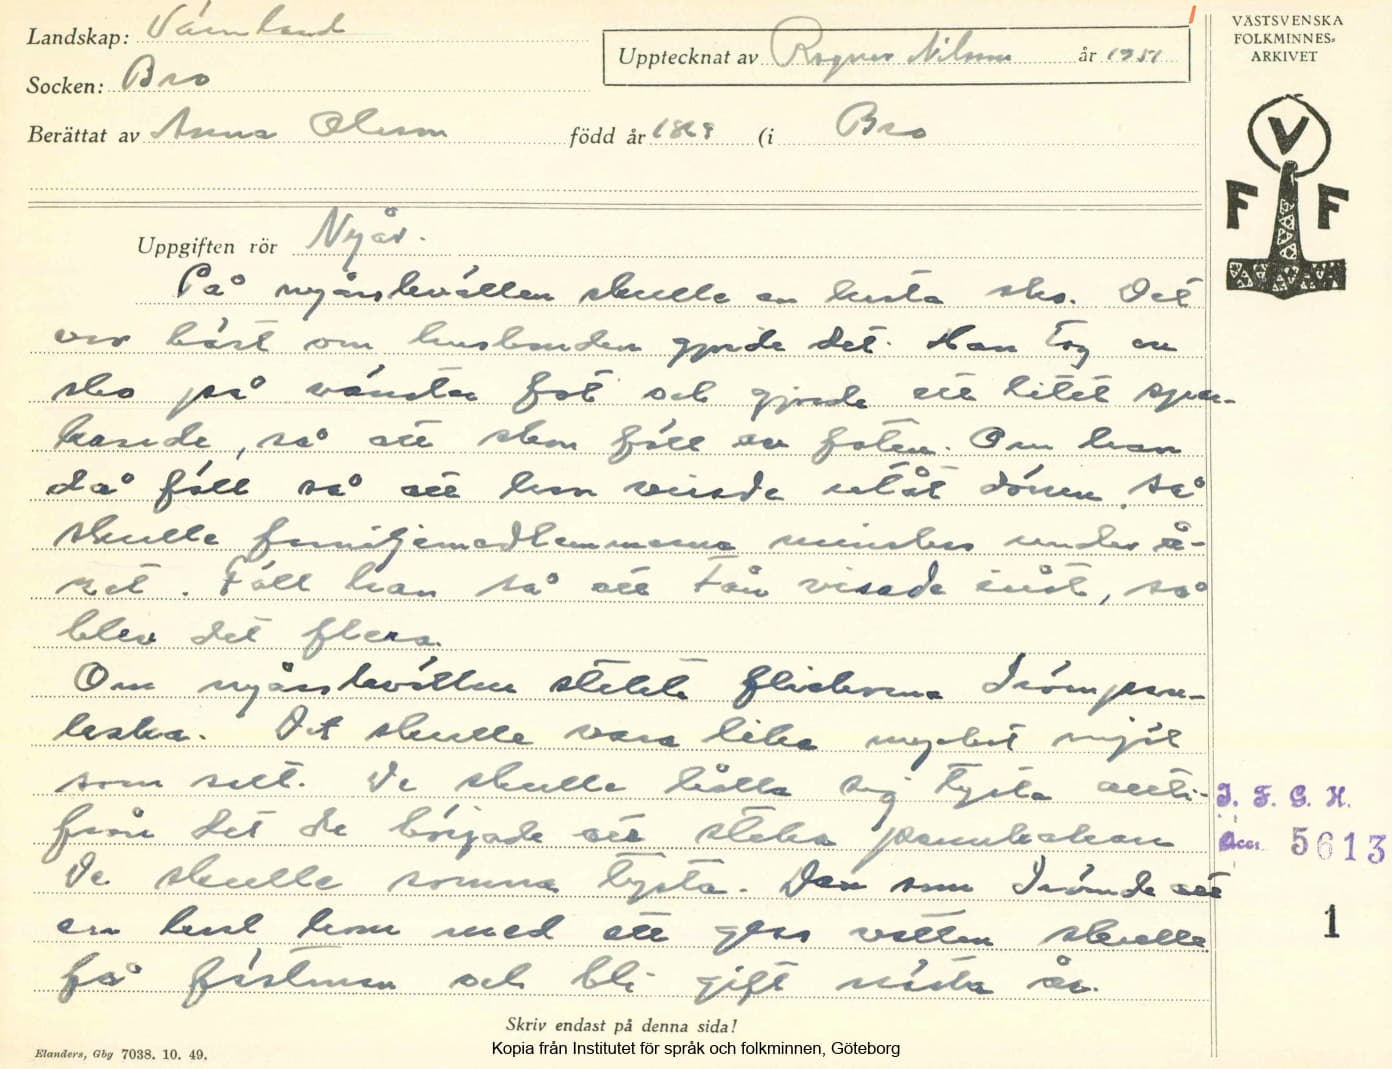 Landskap: Värmland
Upptecknat av Ragnar Nilsson år 1951
Socken: Bro
Berättat av Anna Olsson född år 1869 (i Bro
VÄSTSVENSKA
FOLKMINNES-
ARKIVET
V
F F
Uppgiften rör Nyår.
På nyårskvällen skulle en kasta sko. Det
var bäst om husbonden gjorde det. Han tog en
sko på vänster fot och gjorde ett litet spar-
kande, så att skon föll av foten. Om han
då föll så att han visade utåt dörren, så
skulle familjemedlemmarna minskas under å-
ret. Föll han så att tån visade inåt, så
blev det flera.
Om nyårskvällen stekte flickorna drömpan-
kaka. Det skulle vara lika mycket mjöl
som salt. De skulle hålla sig tysta allti-
från det de började att steka pannkakan
De skulle somna tysta. Den som drömde att
en karl kom med ett glas vatten skulle
få fästman och bli gift nästa år.
I. F. G. H.
Acc. 5613
1
Skriv endast på denna sida!
Elanders, Gbg 7038. 10. 49.
Kopia från Institutet för språk och folkminnen, Göteborg